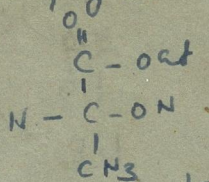 O
"
C - Oat
|
N - C - ON
|
CN3